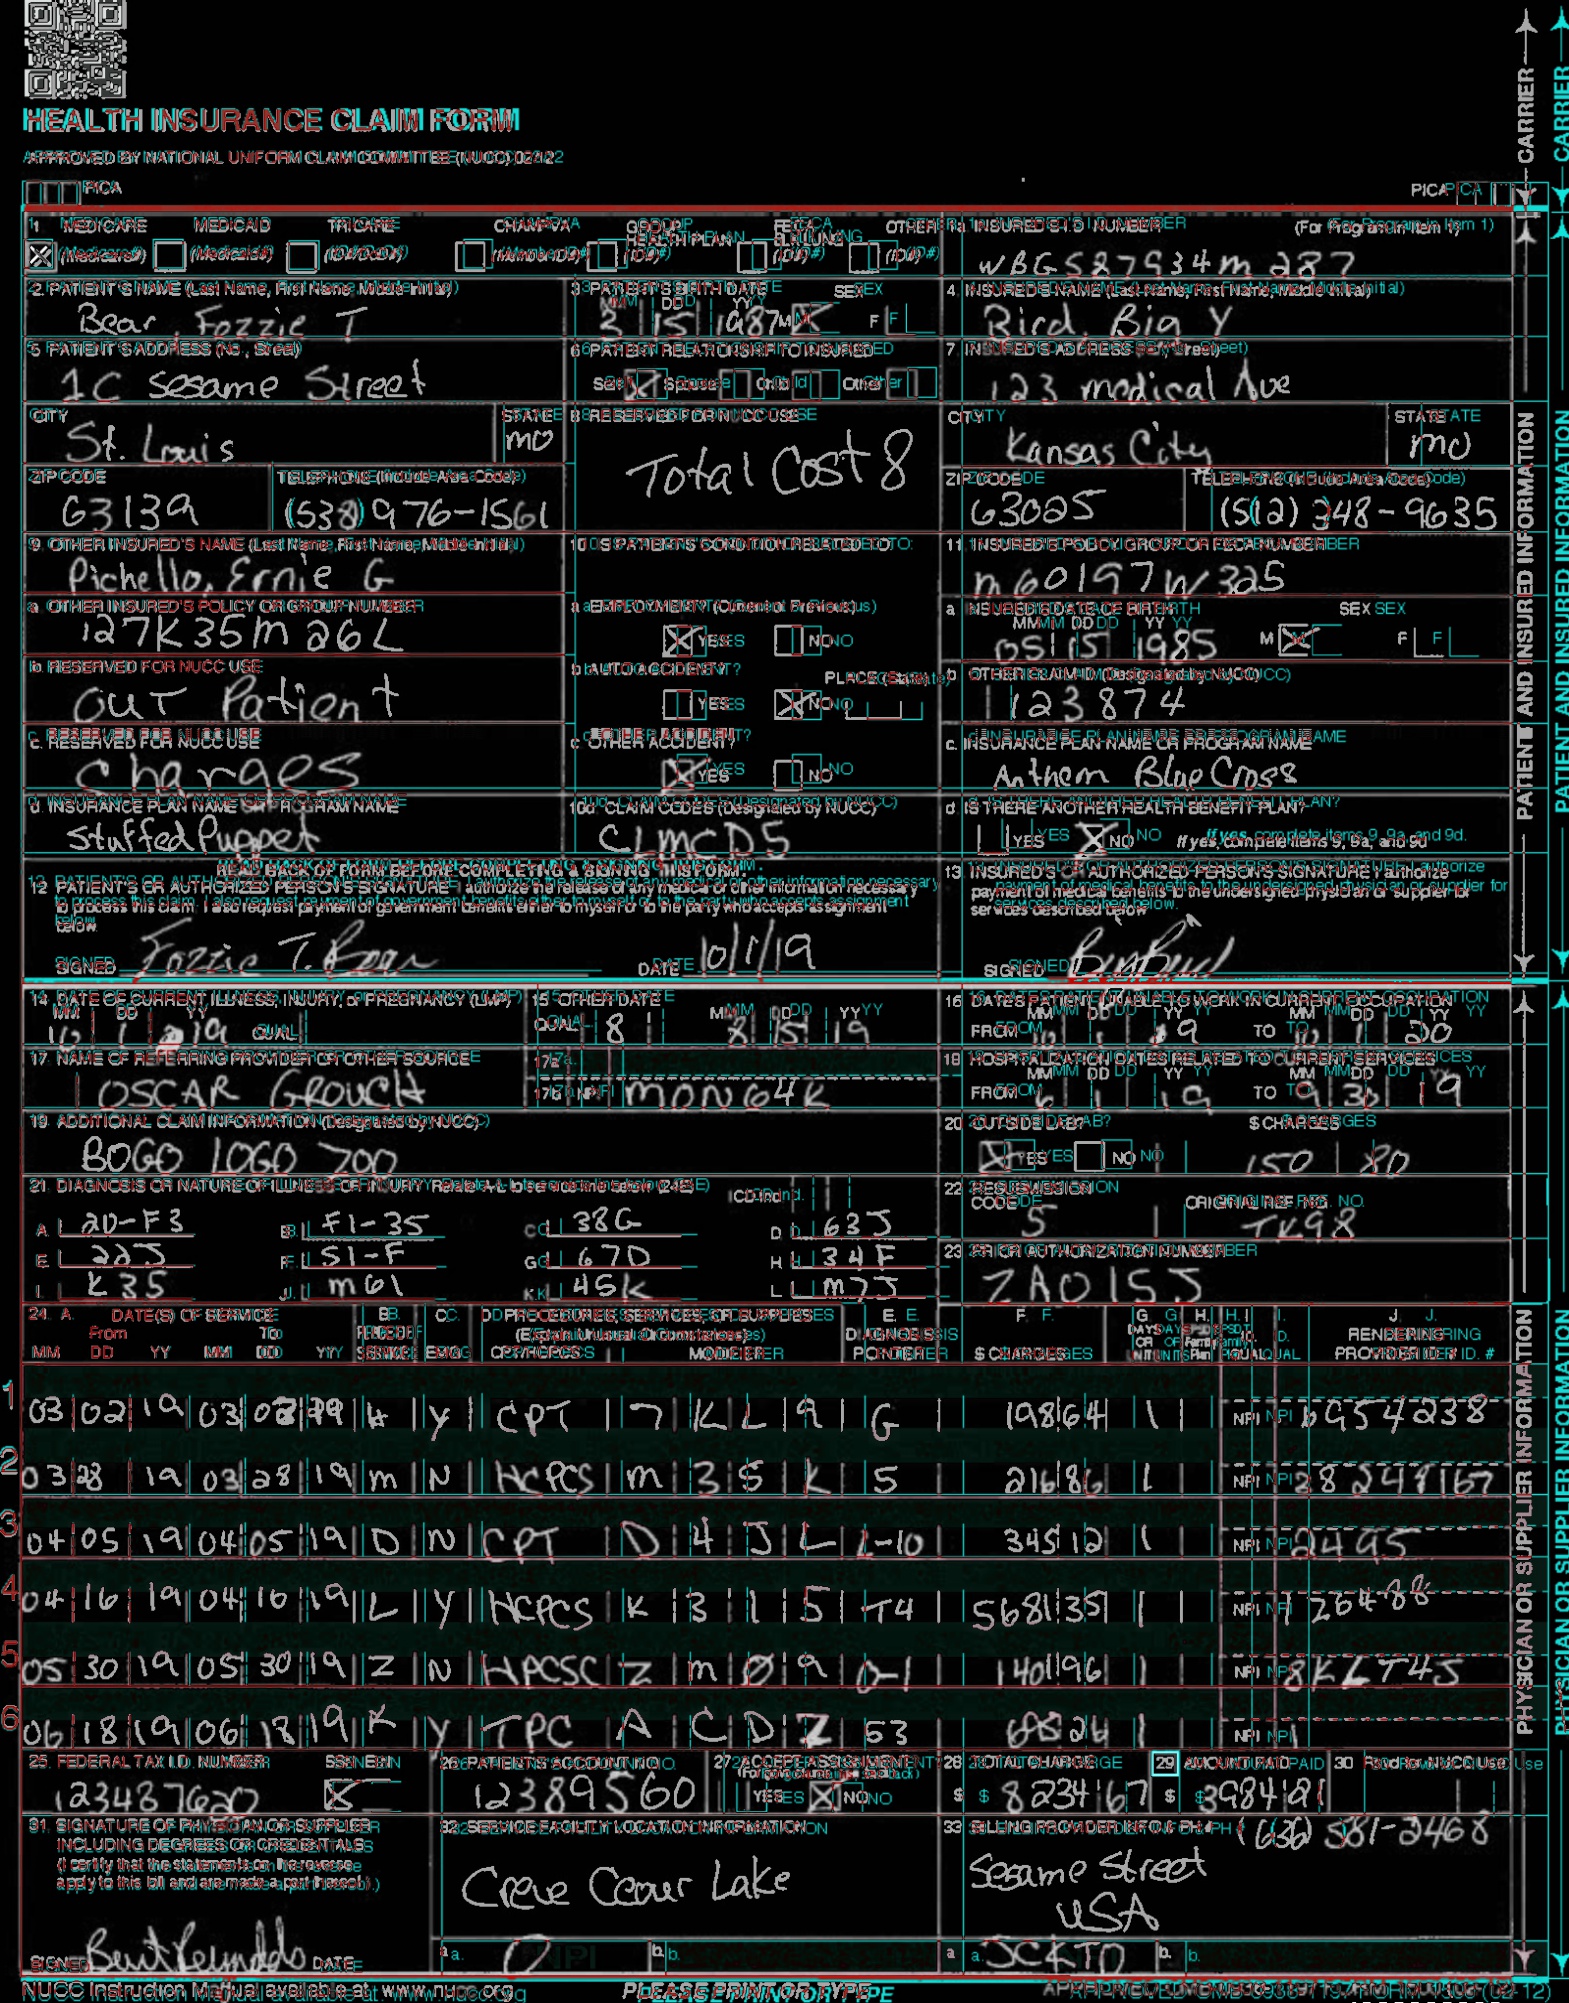 HEALTH INSURANCE CLAIM FORM
APPROVED BY NATIONAL UNIFORM CLAIM COMMITTEE (NUCC) 02/12
PICA PICA
CARRIER
1. MEDICARE MEDICAID TRICARE CHAMPVA GROUP HEALTH PLAN FECA BLK LUNG OTHER
(Medicare#) (Medicaid#) (ID#/DoD#) (Member ID#) (ID#) (ID#) (ID#)
1a. INSURED'S I.D. NUMBER (For Program in Item 1)
WBG527934m287
2. PATIENT'S NAME (Last Name, First Name, Middle Initial)
Bear, Fozzie T
3. PATIENT'S BIRTH DATE SEX
MM DD YY
15 1987 M F
4. INSURED'S NAME (Last Name, First Name, Middle Initial)
Bird, Big Y
5. PATIENT'S ADDRESS (No., Street)
1C Sesame Street
6. PATIENT RELATIONSHIP TO INSURED
Self Spouse Child Other
7. INSURED'S ADDRESS (No., Street)
123 medical Ave
CITY STATE
St. Louis mo
8. RESERVED FOR NUCC USE
Total Cost 8
CITY STATE
Kansas City mo
ZIP CODE TELEPHONE (Include Area Code)
63139 (538) 976-1561
ZIP CODE TELEPHONE (Include Area Code)
63025 (512) 348-9635
9. OTHER INSURED'S NAME (Last Name, First Name, Middle Initial)
Pichello, Ernie G
10. IS PATIENT'S CONDITION RELATED TO:
11. INSURED'S POLICY GROUP OR FECA NUMBER
m60197W325
a. OTHER INSURED'S POLICY OR GROUP NUMBER
127K35m26L
a. EMPLOYMENT? (Current or Previous)
YES NO
a. INSURED'S DATE OF BIRTH SEX
MM DD YY
05 15 1985 M F
b. RESERVED FOR NUCC USE
OUT Patient
b. AUTO ACCIDENT? PLACE (State)
YES NO
b. OTHER CLAIM ID (Designated by NUCC)
123874
c. RESERVED FOR NUCC USE
Charges
c. OTHER ACCIDENT?
YES NO
c. INSURANCE PLAN NAME OR PROGRAM NAME
Anthem Blue Cross
d. INSURANCE PLAN NAME OR PROGRAM NAME
Stuffed Puppet
10d. CLAIM CODES (Designated by NUCC)
CLMCD5
d. IS THERE ANOTHER HEALTH BENEFIT PLAN?
YES NO If yes, complete items 9, 9a, and 9d.
READ BACK OF FORM BEFORE COMPLETING & SIGNING THIS FORM.
12. PATIENT'S OR AUTHORIZED PERSON'S SIGNATURE I authorize the release of any medical or other information necessary
to process this claim. I also request payment of government benefits either to myself or to the party who accepts assignment
below.
SIGNED Fozzie T. Bear DATE 10/1/19
13. INSURED'S OR AUTHORIZED PERSON'S SIGNATURE I authorize
payment of medical benefits to the undersigned physician or supplier for
services described below.
SIGNED
PATIENT AND INSURED INFORMATION
14. DATE OF CURRENT ILLNESS, INJURY, or PREGNANCY (LMP)
MM DD YY
10 1 19 QUAL.
15. OTHER DATE
QUAL. 8 MM DD YY
8 15 19
16. DATES PATIENT UNABLE TO WORK IN CURRENT OCCUPATION
MM DD YY MM DD YY
FROM 1 19 TO 1 20
17. NAME OF REFERRING PROVIDER OR OTHER SOURCE
OSCAR GROUCH
17a.
17b. NPI MONG4K
18. HOSPITALIZATION DATES RELATED TO CURRENT SERVICES
MM DD YY MM DD YY
FROM 6 1 19 TO 9 30 19
19. ADDITIONAL CLAIM INFORMATION (Designated by NUCC)
BOGO LOGO 700
20. OUTSIDE LAB? $ CHARGES
YES NO 150 80
21. DIAGNOSIS OR NATURE OF ILLNESS OR INJURY Relate A-L to service line below (24E) ICD Ind.
A. 2D-F3 B. F1-35 C. 38G D. 63J
E. 22J F. S1-F G. 67D H. 34F
I. K35 J. m61 K. 45K L. m7J
22. RESUBMISSION CODE ORIGINAL REF. NO.
5 TK98
23. PRIOR AUTHORIZATION NUMBER
ZA015J
24. A. DATE(S) OF SERVICE B. C. D. PROCEDURES, SERVICES, OR SUPPLIES E. F. G. H. I. J.
From To PLACE OF SERVICE EMG (Explain Unusual Circumstances) DIAGNOSIS POINTER $ CHARGES DAYS OR UNITS EPSDT Family Plan ID. QUAL. RENDERING PROVIDER ID. #
MM DD YY MM DD YY CPT/HCPCS MODIFIER
1 03 02 19 03 19 H Y CPT 7 K L 9 G 198 64 1 NPI 6954238
2 03 28 19 03 28 19 m N HCPCS m 3 5 K 5 216 86 1 NPI 28248167
3 04 05 19 04 05 19 D N CPT D 4 J L L-10 345 12 1 NPI 2495
4 04 16 19 04 16 19 L Y HCPCS K 3 1 5 T4 5681 35 1 NPI 126488
5 05 30 19 05 30 19 Z N HPCSC Z m 0 9 0-1 1401 96 1 NPI 8KLT4J
6 06 18 19 06 18 19 K Y TPC A C D Z 53 26 1 NPI
25. FEDERAL TAX I.D. NUMBER SSN EIN
123487620
26. PATIENT'S ACCOUNT NO.
12389560
27. ACCEPT ASSIGNMENT?
YES NO
28. TOTAL CHARGE
$ 8234 67
29. AMOUNT PAID
$ 3984 21
30. Rsvd for NUCC Use
31. SIGNATURE OF PHYSICIAN OR SUPPLIER
INCLUDING DEGREES OR CREDENTIALS
(I certify that the statements on the reverse
apply to this bill and are made a part thereof.)
SIGNED Burt Reynolds DATE
32. SERVICE FACILITY LOCATION INFORMATION
Creve Ceour Lake
a. NPI b.
33. BILLING PROVIDER INFO & PH # (636) 581-2468
Sesame Street
USA
a. JCKTD b.
PHYSICIAN OR SUPPLIER INFORMATION
NUCC Instruction Manual available at: www.nucc.org
PLEASE PRINT OR TYPE
APPROVED OMB-0938-1197 FORM 1500 (02-12)